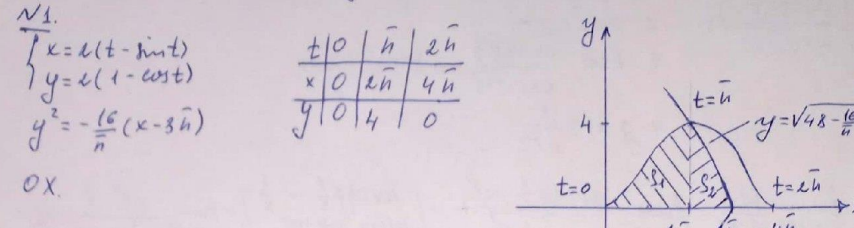 №1.
x = 2(t - sint)
y = 2(1 - cost)
y² = -16/π (x - 3π)
OX.
t | 0 | π | 2π
x | 0 | 2π | 4π
y | 0 | 4 | 0
y
t = π
4
y = √48 - 16/π
S₁
S₂
t = 0
t = 2π